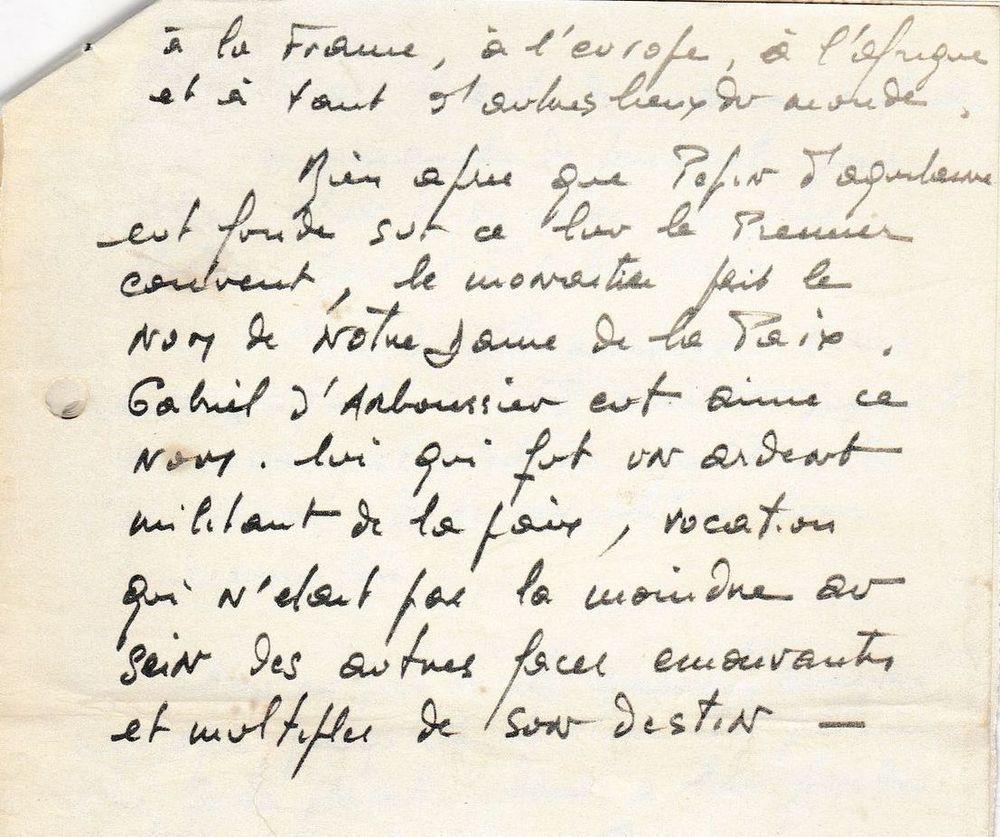 à la France, à l'europe, à l'afrique
et à tant d'autres lieux du monde.
Bien apres que Pepin d'aquitaine
eut fonde sur ce lieu le Premier
couvent, le monastere prit le
Nom de Notre Dame de la Paix.
Gabriel d'Arboussier eut aimé ce
Nom. lui qui fut un ardent
militant de la paix, vocation
qui n'etait pas la moindre au
sein des autres faces emouvantes
et multiples de son destin —